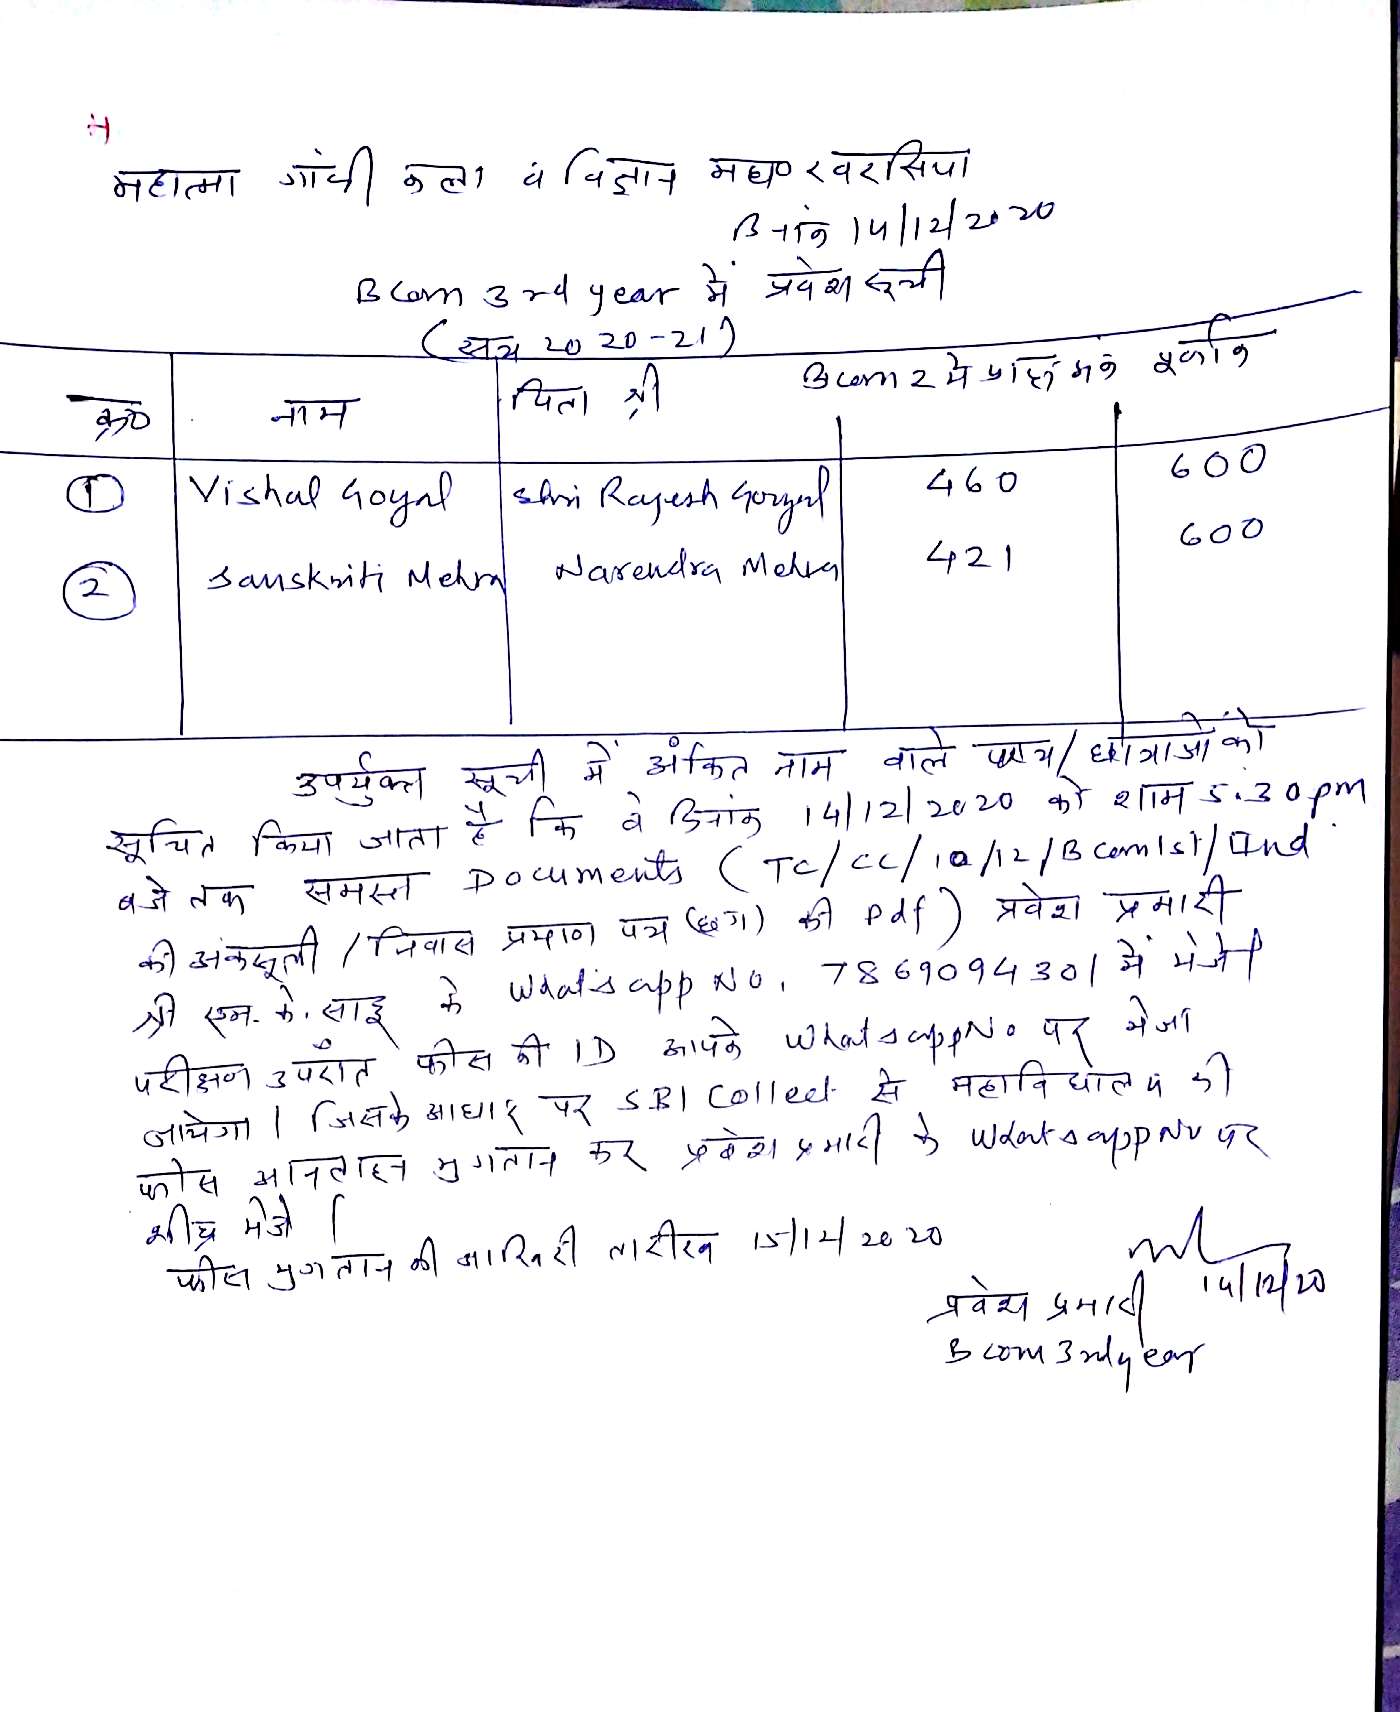 महात्मा गांधी कला व विज्ञान महा० खरसिया
दिनांक 14/12/2020
B com 3rd year में प्रवेश सूची
(सत्र 2020-21)
क्र० नाम पिता श्री B com 2 में प्राप्तांक पूर्णांक
1 Vishal Goyal Shri Rajesh Goyal 460 600
2 Sanskriti Mehra Narendra Mehra 421 600
उपर्युक्त सूची में अंकित नाम वाले छात्र/छात्राओं को
सूचित किया जाता है कि वे दिनांक 14/12/2020 को शाम 5:30 pm
बजे तक समस्त Documents (TC/CC/10/12/B com 1st/IInd
की अंकसूची / निवास प्रमाण पत्र (छ०ग०) की Pdf) प्रवेश प्रभारी
श्री एम. के. साहू के What's app No. 7869094301 में भेजें
परीक्षण उपरांत फीस की ID आपके Whatsapp No पर भेजा
जायेगा। जिसके आधार पर SBI Collect से महाविद्यालय की
फीस आनलाइन भुगतान कर प्रवेश प्रभारी के Whatsapp No पर
शीघ्र भेजें।
फीस भुगतान की आखिरी तारीख 15/12/2020
14/12/20
प्रवेश प्रभारी
B com 3rd year